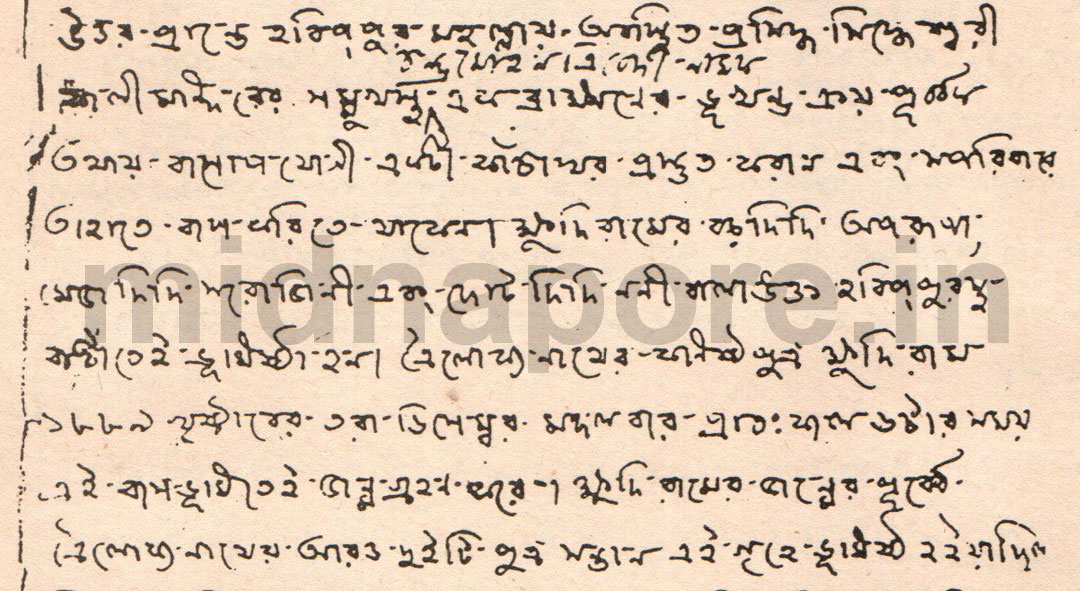 উত্তর প্রান্তে হবিবপুর মহল্লায় অবস্থিত প্রসিদ্ধ সিদ্ধেশ্বরী
কালী মন্দিরের সম্মুখস্থ এক ব্রাহ্মণের ভূখন্ড ক্রয় পূর্ব্বক
তথায় বাসোপযোগী একটী কাঁচা ঘর প্রস্তুত করান এবং সপরিবারে
তাহাতে বাস করিতে থাকেন। ক্ষুদিরামের বড়দিদি অপরূপা,
মেজদিদি সরোজিনী এবং ছোট দিদি ননীবালা উক্ত হবিবপুরস্থ
বাটীতেই ভূমিষ্ঠা হন। ত্রৈলোক্য নাথের কনিষ্ঠ পুত্র ক্ষুদিরাম
১৮৮৯ খৃষ্টাব্দের ৩রা ডিসেম্বর মঙ্গলবার প্রাতঃকাল ৬টার সময়
এই বাসভূমিতেই জন্মগ্রহন করে। ক্ষুদিরামের জন্মের পূর্ব্বে
ত্রৈলোক্য নাথের আরও দুইটি পুত্র সন্তান এই গৃহে ভূমিষ্ঠ হইয়াছিল
midnapore.in